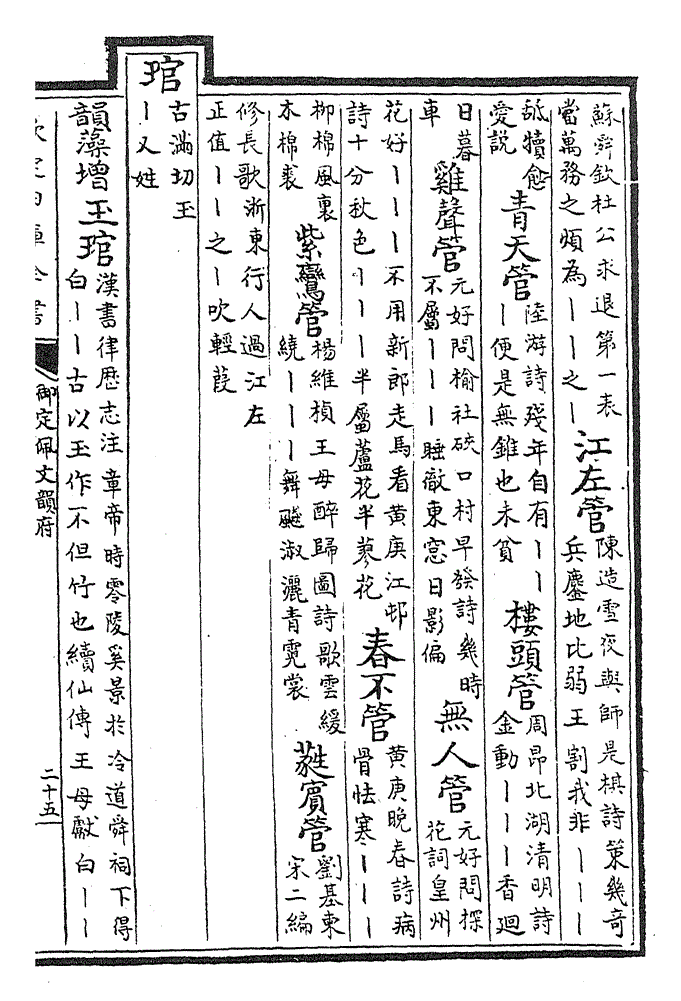 蘇舜欽杜公求退第一表
當萬務之煩為丨丨之丨
江左管
陳造雪夜與師是棋詩策幾奇
兵鏖地比弱王割我非丨丨丨
舐犢愈
愛説
青天管
陸游詩殘年自有丨丨
丨便是無錐也未貧
樓頭管
周昂北湖清明詩
金動丨丨丨香廻
日暮
車
雞聲管
元好問榆社硤口村早發詩幾時
不屬丨丨丨睡徹東窓日影偏
無人管
元好問探
花詞皇州
花好丨丨丨不用新郎走馬看黄庚江邨
詩十分秋色丨丨丨半屬蘆花半蓼花
春不管
黄庚晚春詩病
骨怯寒丨丨丨
柳棉風裏
木棉裘
紫鸞管
楊維楨王母醉歸圖詩歌雲緩
繞丨丨丨舞颷淑灑青霓裳
蕤賓管
劉基東
宋二編
修長歌浙東行人過江左
正值丨丨之丨吹輕葭
琯
古滿切玉
丨又姓
韻藻增玉琯
漢書律歴志注章帝時零陵奚景於冷道舜祠下得
白丨丨古以玉作不但竹也續仙傳王母獻白丨丨
欽定四庫全書
御定佩文韻府
二十五